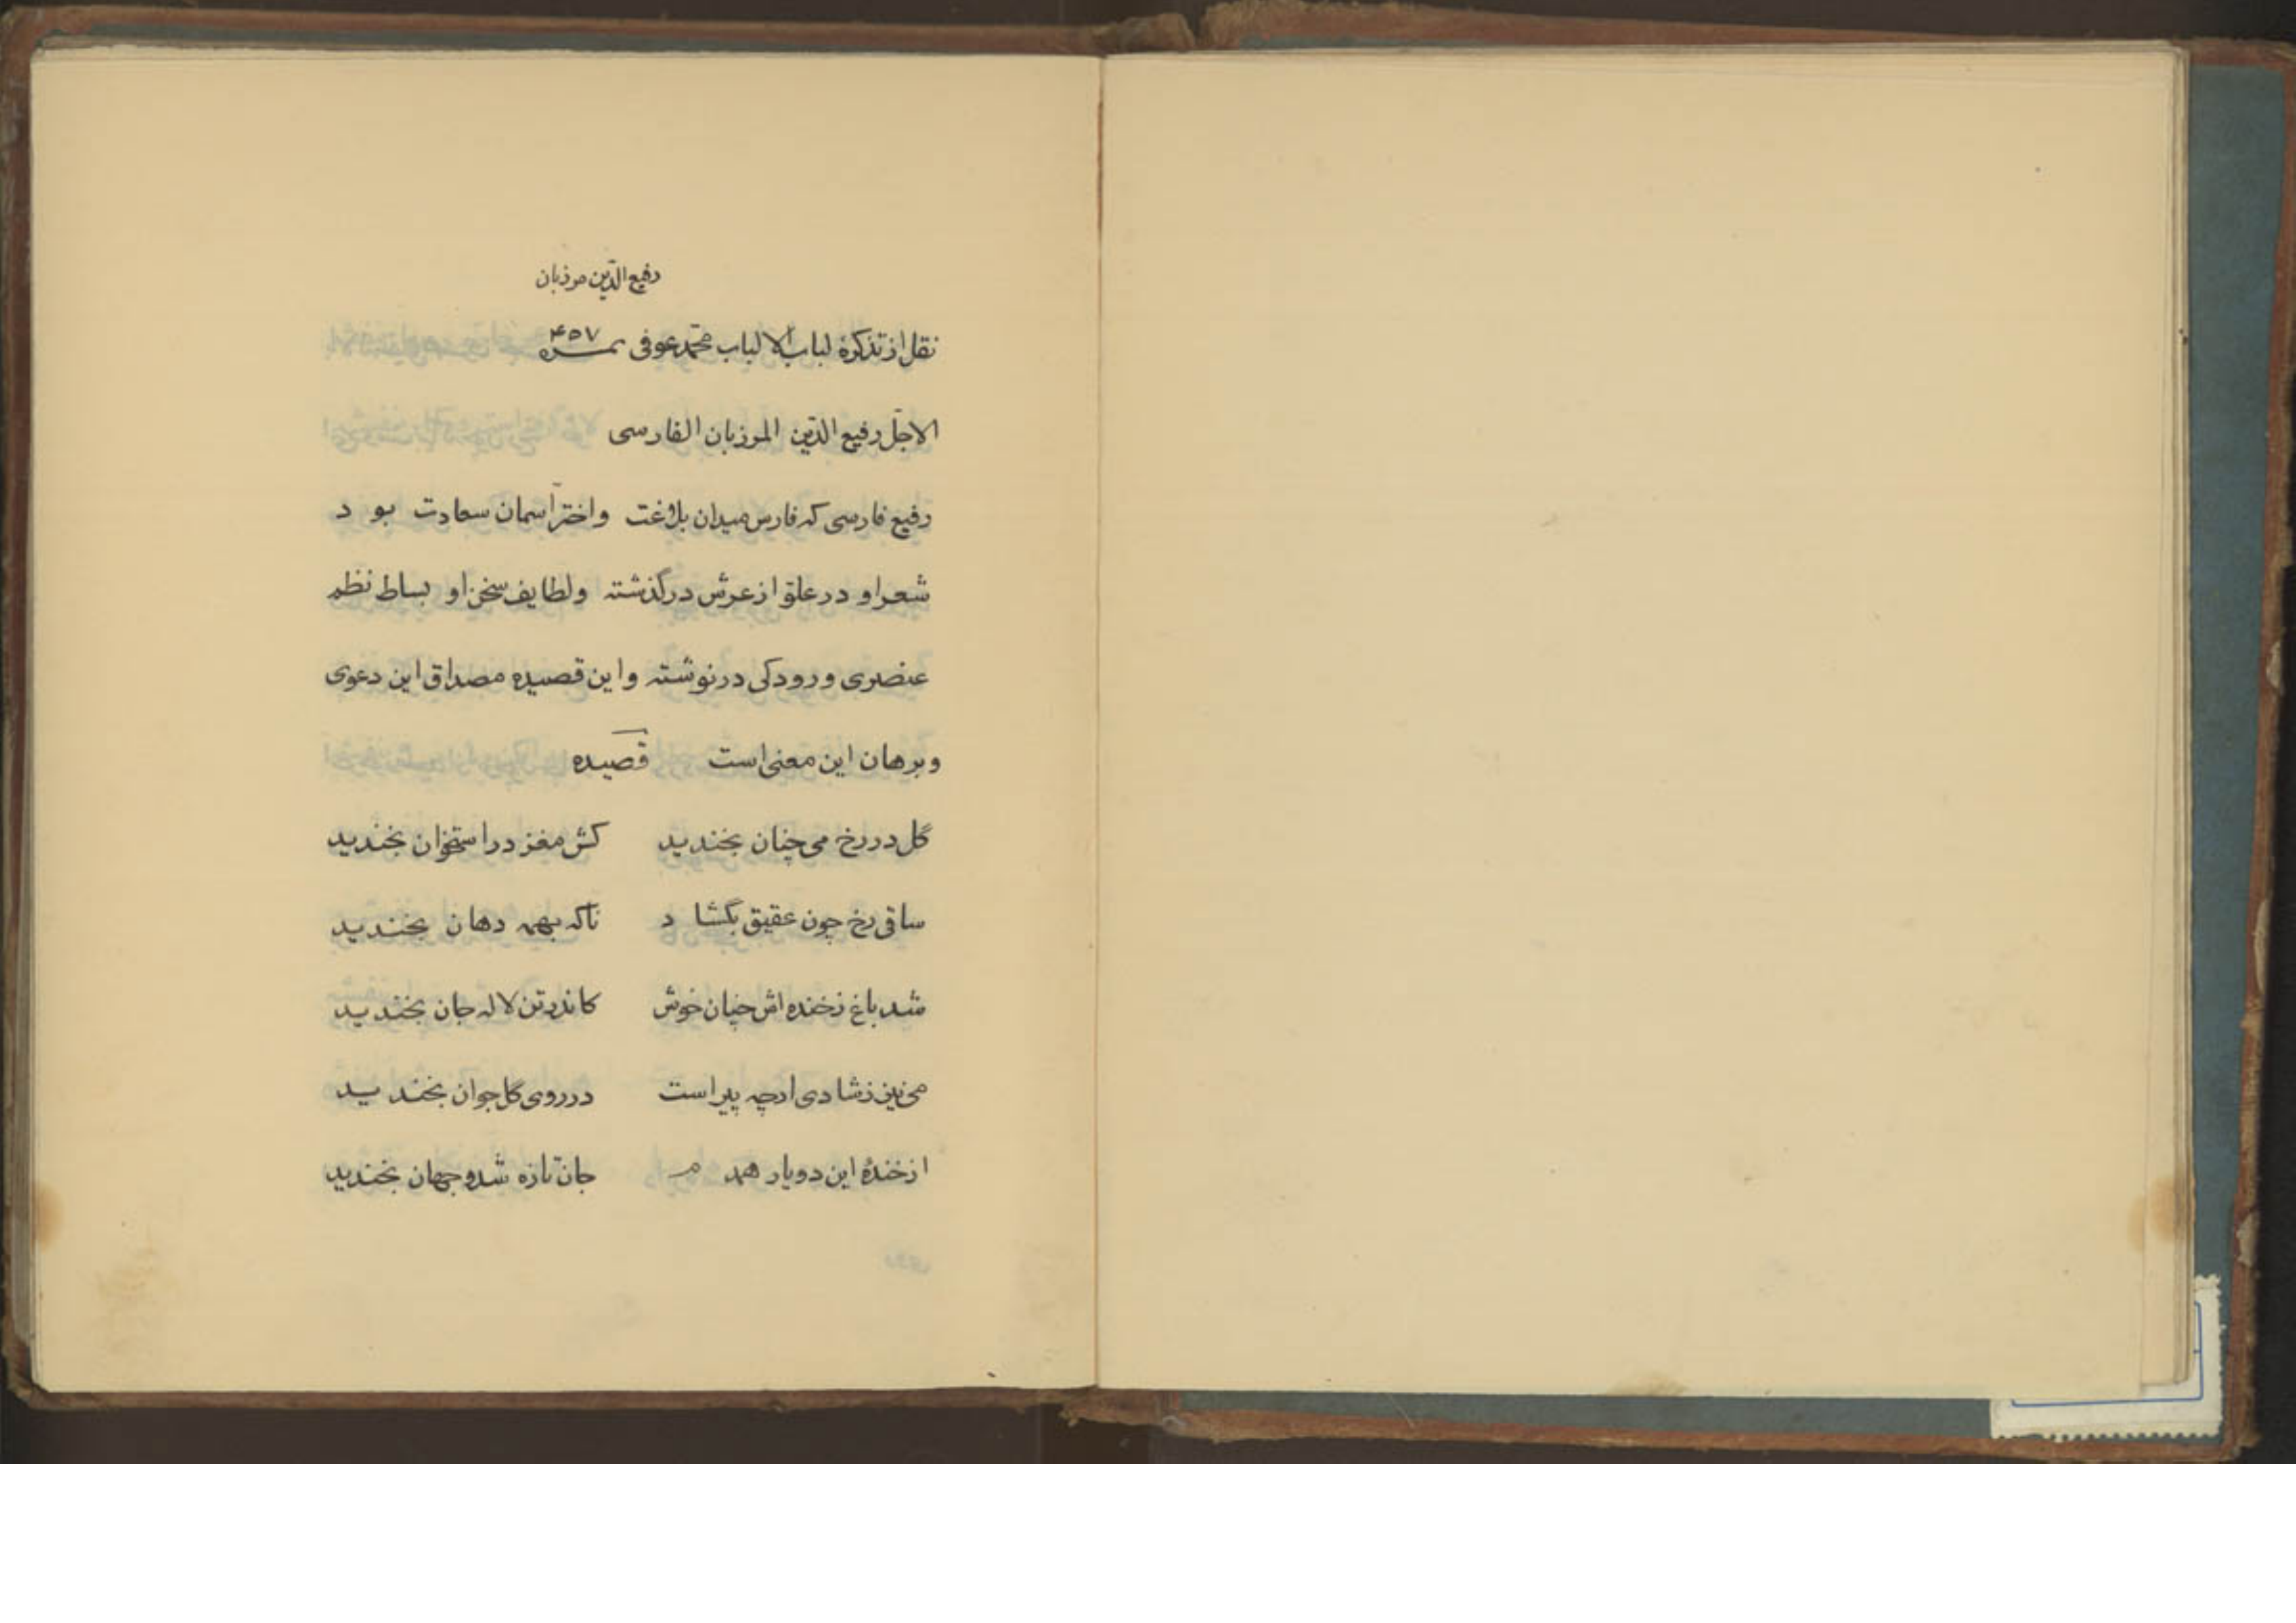 رفیع الدّین مرزبان
نقل از تذکرهٔ لباب الالباب محمّد عوفی نمره ۴۵۷
الاجلّ رفیع الدّین المرزبان الفارسی
رفیع فارسی که فارس میدان بلاغت و اختر آسمان سعادت بود
شعر او در علوّ از عرش درگذشته و لطایف سخن او بساط نظم
عنصری و رودکی درنوشته و این قصیده مصداق این دعوی
و برهان این معنی است قصیده
گل در رخ می چنان بخندید کش مغز در استخوان بخندید
ساقی رخ چون عقیق بگشاد تا که بهمه دهان بخندید
شد باغ ز خنده اش چنان خوش کاندر تن لاله جان بخندید
می نیز ز شادی ارچه پیر است در روی گل جوان بخندید
از خندهٔ این دو یار همدم جان تازه شد و جهان بخندید